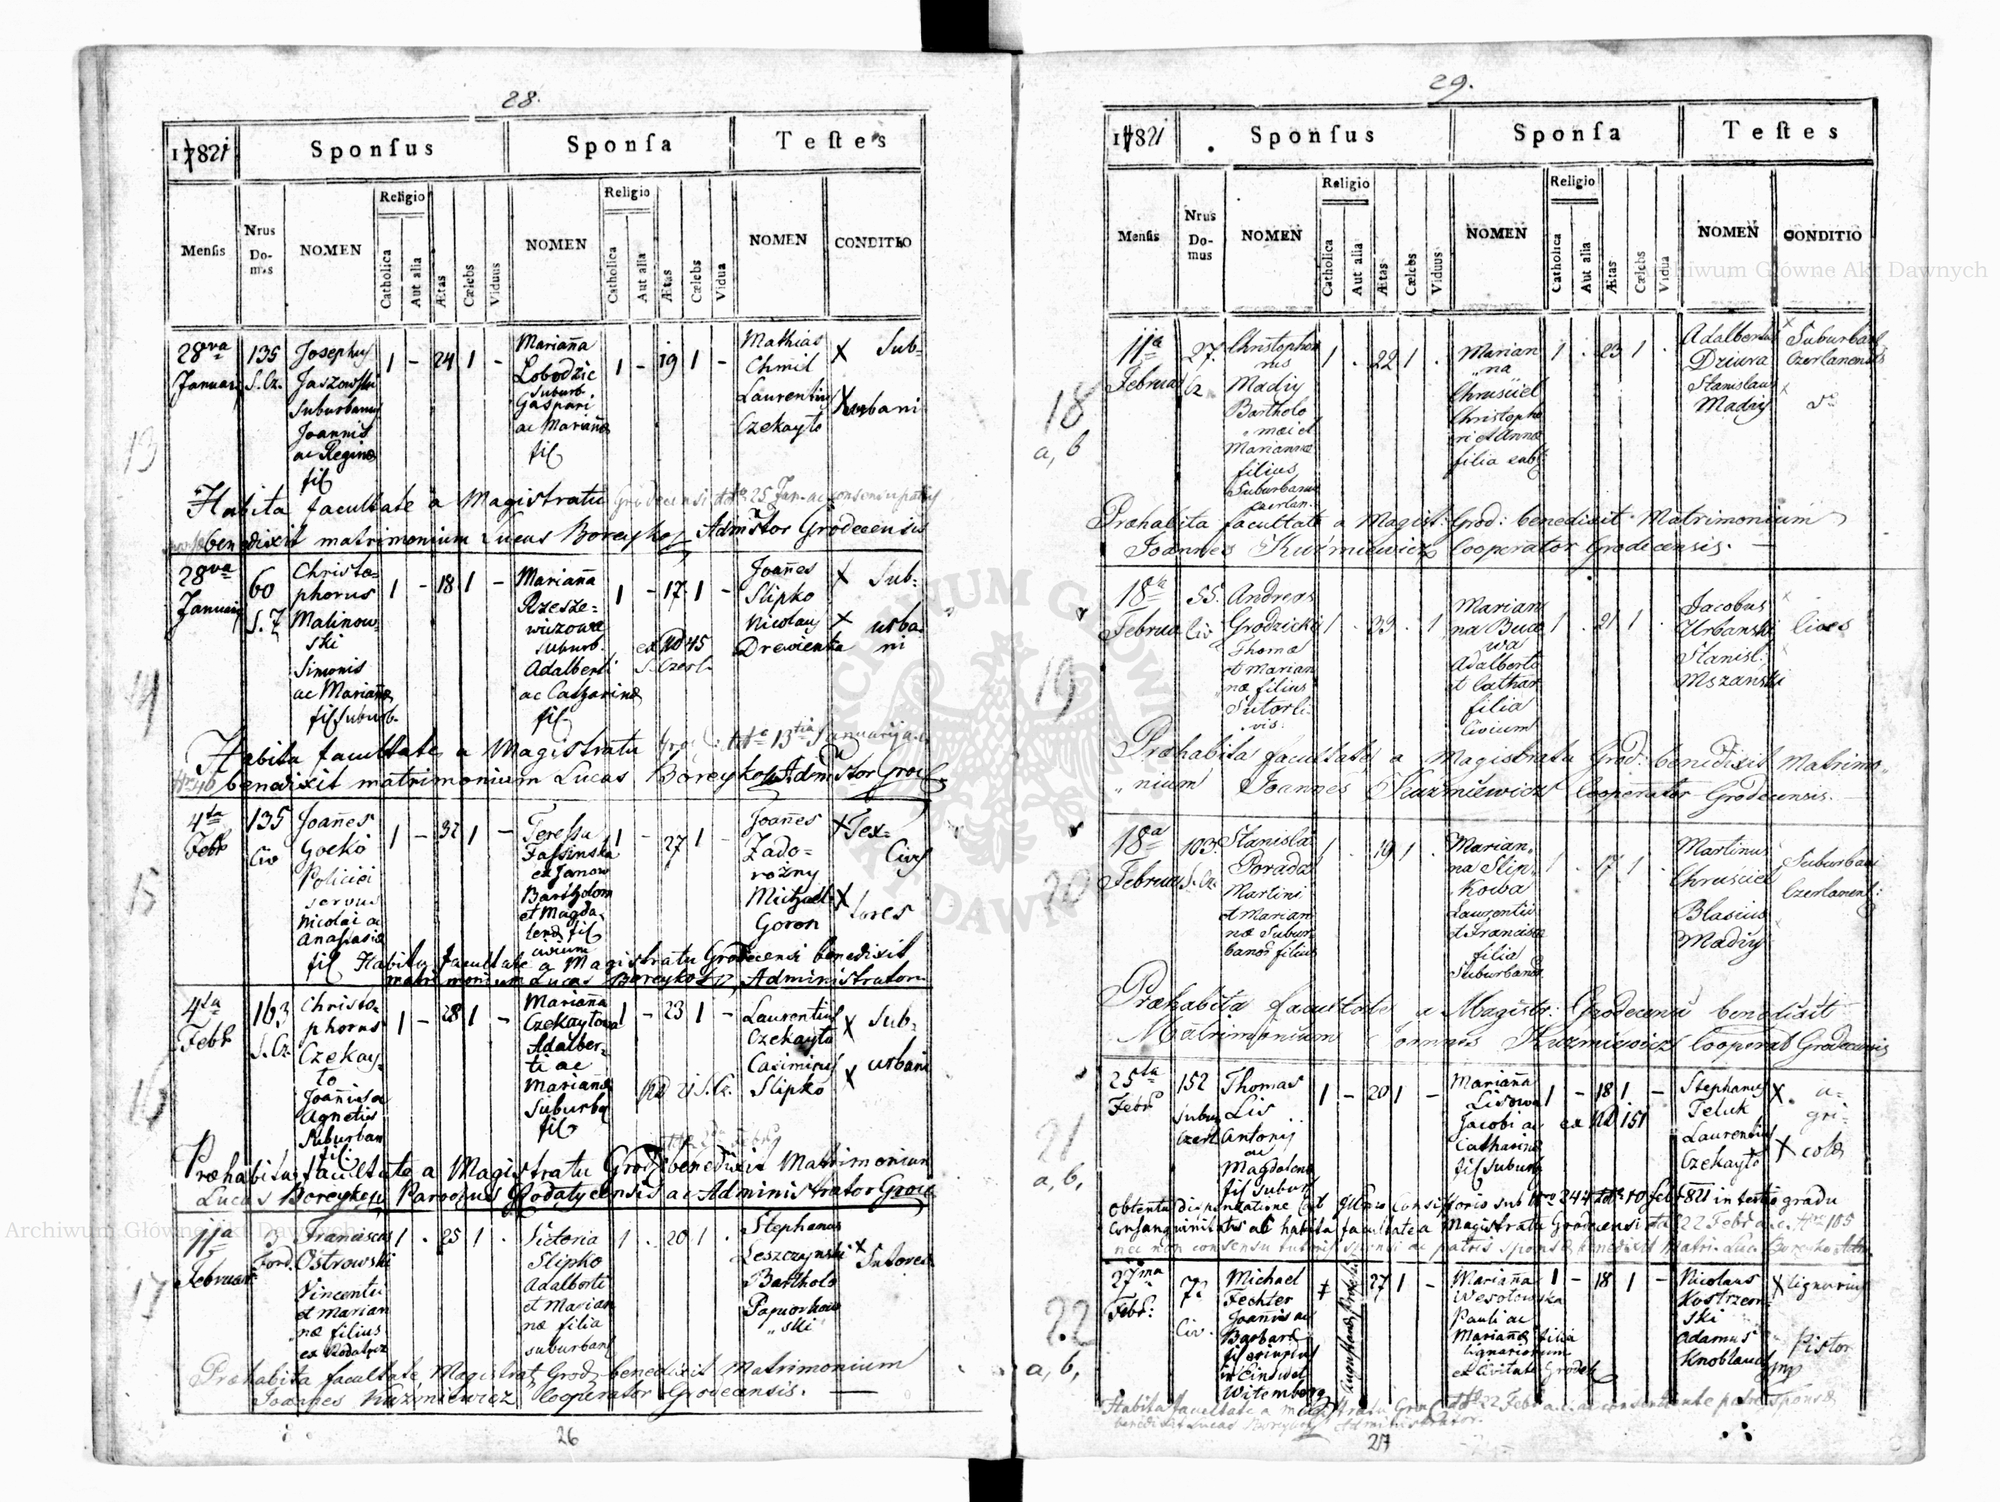 28.
17821
Sponſus
Sponſa
Teſtes
Menſis
Nrus Domus
NOMEN
Religio
Catholica
Aut alia
Ætas
Cælebs
Viduus
NOMEN
Religio
Catholica
Aut alia
Ætas
Cælebs
Vidua
NOMEN
CONDITIO
13
28va
Januar
135
S. Cz.
Josephus
Jaszowski
Suburbanus
Joannis
ac Reginæ
fil
1 - 24 1 -
Mariana
Lobodzic
suburb.
Gaspari
ac Marianæ
fil
1 - 19 1 -
Mathias
Chmil
Laurentius
Czekayto
X Sub-
X urbani
Habita facultate a Magistratu Grodecensi ddto 25 Jan. ac consensu patris
benedixit matrimonium Lucas Boreyko Admstor Grodecensis
14
28va
Januarij
60
S. 7
Christo-
phorus
Malinow-
ski
Simonis
ac Marianæ
fil suburb.
1 - 18 1 -
Mariana
Rzesze-
wiczowa
suburb.
Adalberti
ac Catharinæ
fil
1 - 17 1 -
ex Nd 45
S. Czerl.
Joanes
Slipko
Nicolaus
Drewienka
X Sub-
X urba-
ni
Habita facultate a Magistratu Grod: ddto 13tia Januarij a. c.
benedixit matrimonium Lucas Boreyko Admstor Grod
15
4ta
Febr
135
Civ
Joanes
Gocko
Policiei
servus
Nicolai ac
Anastasiæ
fil
1 - 32 1 -
Teressa
Fassinska
ex Janow
Barthdom
et Magda-
lenæ fil
civium
1 - 27 1 -
Joanes
Zado-
rożny
Michael
Goron
X Tex-
Civ
X tores
Habita facultate a Magistratu Grodecensi benedixit
matrimonium Lucas Boreyko Administrator
16
4ta
Febr
163
S. Cz.
Christo-
phorus
Czekay-
to
Joannis ac
Agnetis
Suburban
fil
1 - 28 1 -
Mariana
Czekaytowa
Adalber-
ti ac
Marianæ
Suburba
fil
1 - 23 1 -
Nd 21 S. Cz.
Laurentius
Czekayto
Casimirus
Slipko
X Sub-
X urbani
Præhabita facultate a Magistratu Grod benedixit Matrimonium
Lucas Boreyko Parochus Rodatycensis ac Administrator Grod
17
11a
Februar
3
Ford.
Franciscus
Ostrowski
Vincentii
et Marian
næ filius
ex Rodatycz
1 . 25 1 .
Victoria
Slipko
Adalberti
et Marian
næ filia
suburban
1 . 20 1 .
Stephanus
Leszczynski
Bartholo
Papiorkow
ski
X Sutores
Præhabita facultate Magistrat Grod benedixit Matrimonium
Joannes Kuźmiewicz Cooperator Grodecensis.
26
29.
17821
Sponſus
Sponſa
Teſtes
Menſis
Nrus Domus
NOMEN
Religio
Catholica
Aut alia
Ætas
Cælebs
Viduus
NOMEN
Religio
Catholica
Aut alia
Ætas
Cælebs
Vidua
NOMEN
CONDITIO
18
a, b
11a
Februar
27
Cz
Christopho
rus
Madiy
Bartholo
mæi et
Mariannæ
filius
Suburbanus
Czerlan.
1 . 22 1 .
Marian
na
Chrusciel
Christopho
ri et Annæ
filia sub
1 . 23 1 .
Adalbertus
Dziura
Stanislaus
Madiy
X Suburbani
Czerlanensis
do
Præhabita facultate a Magist: Grod: benedixit Matrimonium
Joannes Kuźmiewicz Cooperator Grodecensis.
19
18a
Februa
55.
Civ
Andreas
Grodzicki
Thomæ
et Marian
næ filius
Sutor Ci-
vis.
1 . 33 . 1
Marian
na Buca
wa
Adalberti
et Cathar
filia
Civium
1 . 21 1 .
Jacobus
Urbanski
Stanisl:
Mszanski
Cives
Præhabita facultate a Magistratu Grod: benedixit Matrimo-
nium Joannes Kuźmiewicz Cooperator Grodecensis.
20
18a
Februar
103
S. Cz.
Stanisla
Porada
Martini
et Marian
næ Subur
banor filius
1 . 19 1 .
Marian
na Slip-
kowa
Laurentii
et Francisca
filia
Suburbanor
1 . 17 1 .
Martinus
Chrusciel
Blasius
Madiy
Suburbani
Czerlanens:
Præhabita facultate a Magistr: Grodecensi benedixit
Matrimonium Joannes Kuźmiewicz Cooperat Grodecensis
21
a, b,
25ta
Febr
152
Subur
Czerl
Thomas
Lis
Antonij
ac
Magdalenæ
fil suburb
1 - 20 1 -
Mariana
Lisowa
Jacobi ac
Catharinæ
fil suburb
1 - 18 1 -
ex Nd 151
Stephanus
Teluk
Laurentius
Czekayto
X a-
gri-
X colæ
Obtenta dispensatione ab Illmo Consistorio sub Nro 244 ddto 10 Febr 821 in tertio gradu
consanguinitatis ac habita facultate a Magistratu Grodecensi ddto 22 Febr a. c. Nro 105
nec non consensu tutoris sponsi ac patris sponsæ benedixit Matri. Luc. Boreyko
22
a, b,
27ma
Febr:
72
Civ.
Michael
Fechter
Joannis ac
Barbaræ
fil oriundus
Witemberg
27 1 -
Mariana
Wesołowska
Pauli ac
Marianæ filia
lignariorum
ex Civitate Grodek
1 - 18 1 -
Nicolaus
Kostrzem-
ski
Adamus
Knoblauch
X lignarius
Pistor
mp
Habita facultate a Magistratu Grod ddto 22 Febr a. c. ac consentiente patre Sponsæ
benedixit Lucas Boreyko Administrator.
27
Archiwum Główne Akt Dawnych
Archiwum Główne Akt Dawnych
ARCHIWUM GŁÓWNE AKT DAWNYCH